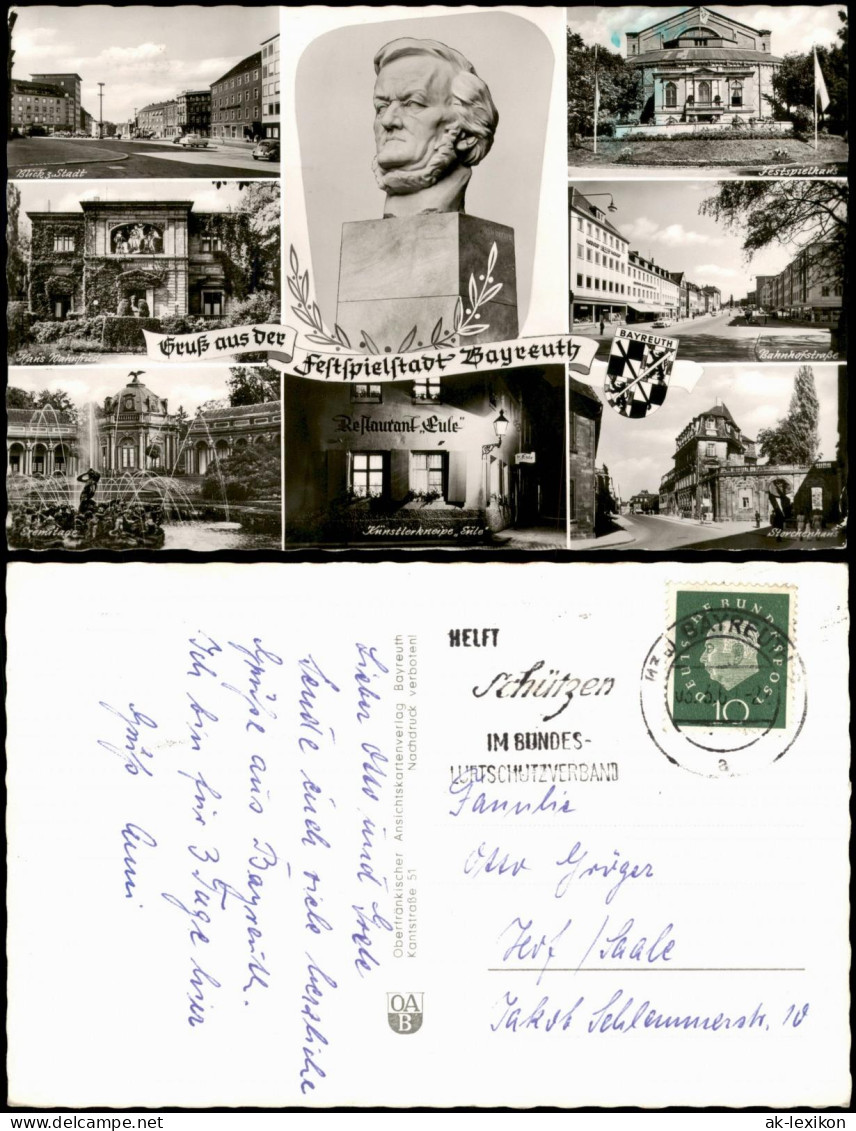 Blick z. Stadt
Festspielhaus
Haus Wahnfried
Gruß aus der
Festspielstadt Bayreuth
BAYREUTH
Bahnhofstraße
Eremitage
Restaurant „Eule“
Künstlerkneipe „Eule“
Storchenhaus
Lieber Otto und Grete
Sende euch viele herzliche
Grüße aus Bayreuth.
Ich bin für 3 Tage hier
Gruß Anni
Oberfränkischer Ansichtskartenverlag Bayreuth
Kantstraße 51 Nachdruck verboten!
OA
B
HELFT
schützen
IM BUNDES-
LUFTSCHUTZVERBAND
BAYREUTH
a
DEUTSCHE BUNDESPOST
10
Familie
Otto Gröger
Hof / Saale
Jakob Schlemmerstr. 10
ak-lexikon